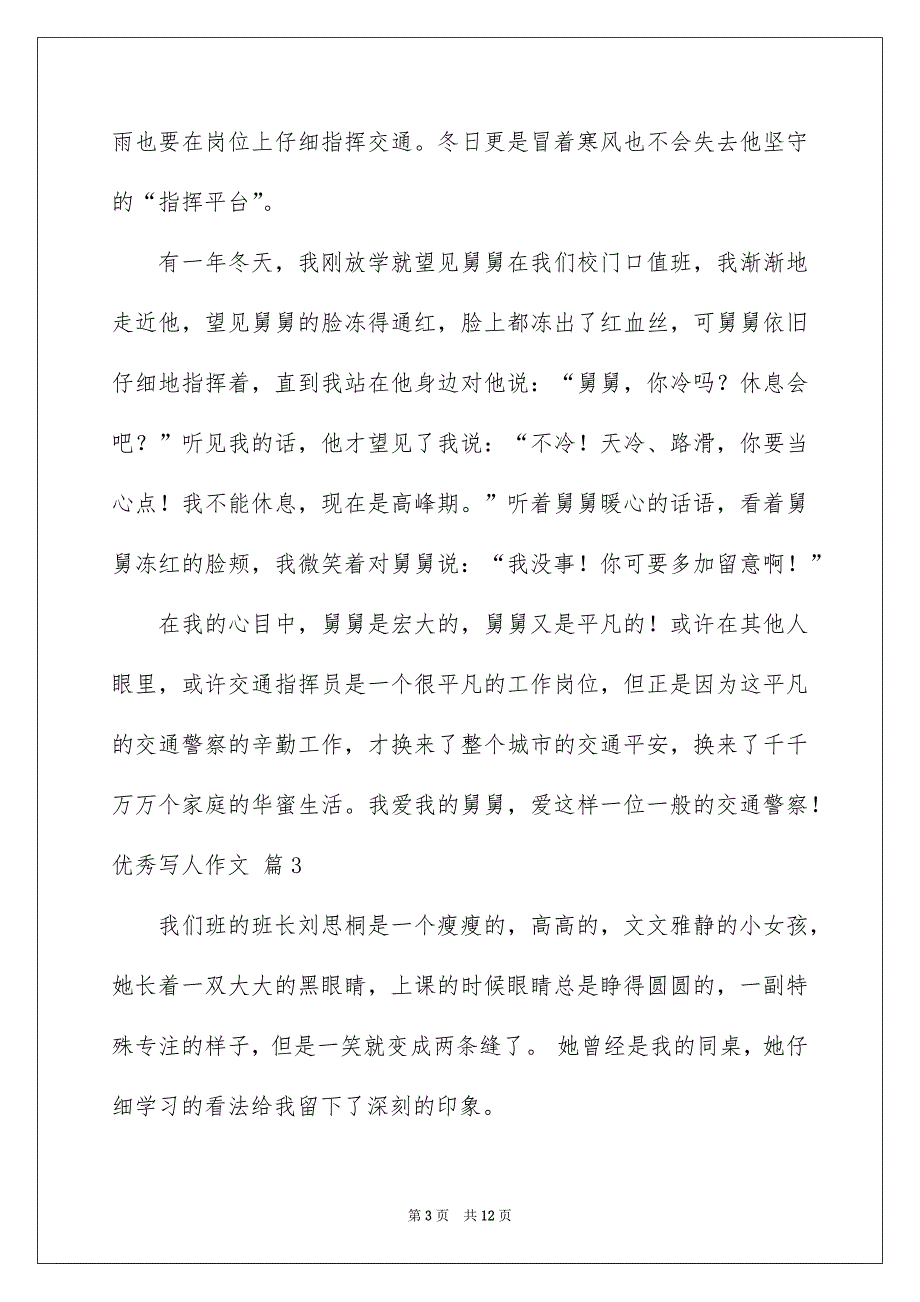 雨也要在岗位上仔细指挥交通。冬日更是冒着寒风也不会失去他坚守
的“指挥平台”。
有一年冬天，我刚放学就望见舅舅在我们校门口值班，我渐渐地
走近他，望见舅舅的脸冻得通红，脸上都冻出了红血丝，可舅舅依旧
仔细地指挥着，直到我站在他身边对他说：“舅舅，你冷吗？休息会
吧？”听见我的话，他才望见了我说：“不冷！天冷、路滑，你要当
心点！我不能休息，现在是高峰期。”听着舅舅暖心的话语，看着舅
舅冻红的脸颊，我微笑着对舅舅说：“我没事！你可要多加留意啊！”
在我的心目中，舅舅是宏大的，舅舅又是平凡的！或许在其他人
眼里，或许交通指挥员是一个很平凡的工作岗位，但正是因为这平凡
的交通警察的辛勤工作，才换来了整个城市的交通平安，换来了千千
万万个家庭的华蜜生活。我爱我的舅舅，爱这样一位一般的交通警察！
优秀写人作文 篇3
我们班的班长刘思桐是一个瘦瘦的，高高的，文文雅静的小女孩，
她长着一双大大的黑眼睛，上课的时候眼睛总是睁得圆圆的，一副特
殊专注的样子，但是一笑就变成两条缝了。 她曾经是我的同桌，她仔
细学习的看法给我留下了深刻的印象。
第 3 页 共 12 页